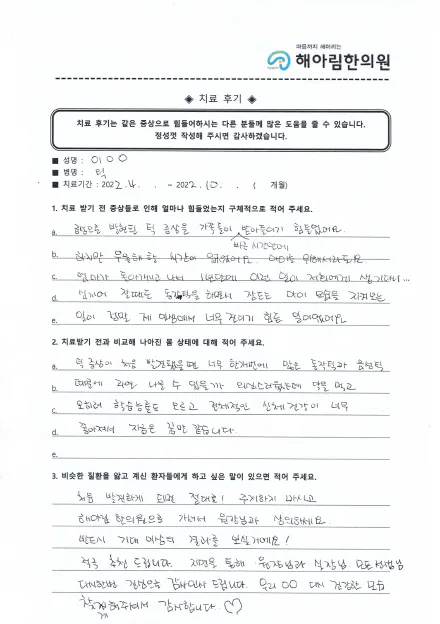 마음까지 헤아리는
해아림한의원
◈ 치료 후기 ◈
치료 후기는 같은 증상으로 힘들어하시는 다른 분들께 많은 도움을 줄 수 있습니다.
정성껏 작성해 주시면 감사하겠습니다.
■ 성명 : 이OO
■ 병명 : 틱
■ 치료기간 : 2022. 4. . ~ 2022. 10. . ( 개월)
1. 치료 받기 전 증상들로 인해 얼마나 힘들었는지 구체적으로 적어 주세요.
a. 처음으로 발현된 틱 증상을 가족들이 받아들이기 힘들었어요.
빠른 시간안에
b. 하지만 우울해 할 시간이 없었어요. 아이를 위해서라도요.
c. 엄마가 돌아가시고 나서 1년만에 이런 일이 저희에게 생기다니...
d. 심지어 잘때도 동작틱을 하면서 잠드는 아이 모습을 지켜보는
e. 일이 정말 제 마음에서 너무 견디기 힘든 일이었어요
2. 치료받기 전과 비교해 나아진 몸 상태에 대해 적어 주세요.
a. 틱 증상이 처음 발현됐을때 너무 한꺼번에 많은 동작틱과 음성틱
b. 때문에 과연 나을 수 있을까 의심스러웠는데 약을 먹고
c. 오히려 학습능률도 오르고 전체적인 신체건강이 너무
d. 좋아져서 지금은 꿈만 같습니다.
e.
3. 비슷한 질환을 앓고 계신 환자들에게 하고 싶은 말이 있으면 적어 주세요.
처음 발견하게 되면 절대로! 주저하지 마시고
해아림 한의원으로 가셔서 원장님과 상의하세요.
반드시 기대 이상의 결과를 보실거예요!
적극 추천 드립니다. 지면을 통해 원장님과 실장님, 모든 선생님
다시한번 진심으로 감사인사 드립니다. 우리 OO 다시 건강한 모습
찾게해주셔서 감사합니다. ♡
게